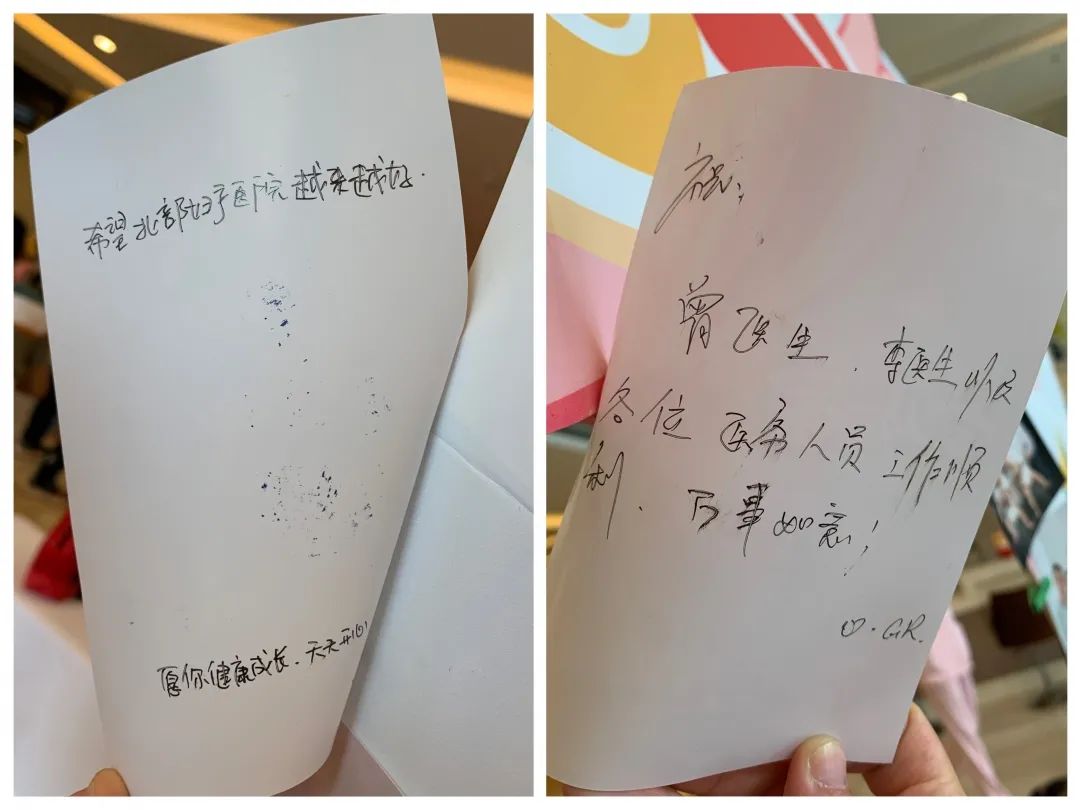 希望北部妇产医院越来越好.
愿你健康成长.天天开心
祝:
曾医生.李医生以及
各位医务人员工作顺
利.万事如意!
GR.